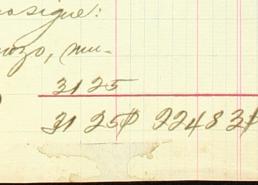 nosigue:
nozo, mu-
31 25
31 25 $ 22483 $